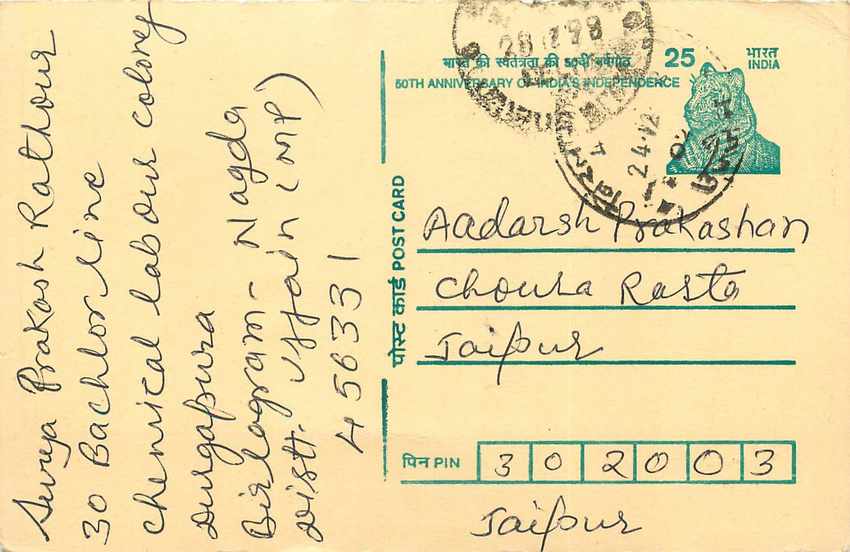 Surya Prakash Rathour
30 Bachlor line
chemical labour colony
Durgapura
Birlagram - Nagda
Distt. Ujjain (MP)
456331
भारत की स्वतंत्रता की 50वीं वर्षगांठ
50TH ANNIVERSARY OF INDIA'S INDEPENDENCE
25
भारत
INDIA
28
98
24.12
पोस्ट कार्ड POST CARD
Aadarsh Prakashan
Choura Rasta
Jaipur
पिन PIN
302003
Jaipur